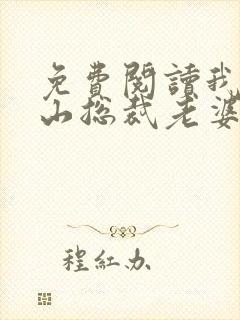 免費閱讀我
山總裁老婆
程紅办